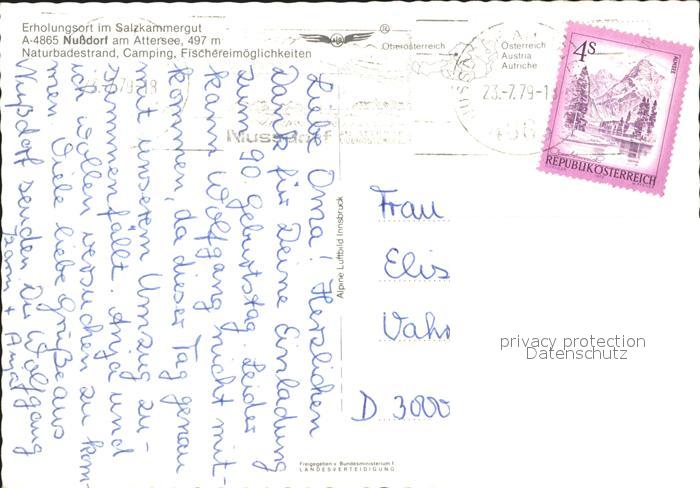 Erholungsort im Salzkammergut
A-4865 Nußdorf am Attersee, 497 m
Naturbadestrand, Camping, Fischereimöglichkeiten
®
Oberösterreich
Österreich
Austria
Autriche
4s
REPUBLIK ÖSTERREICH
23.-7.79-1
Nussdorf
Liebe Oma! Herzlichen
Dank für Deine Einladung
zum 90. Geburtstag. Leider
kann Wolfgang nicht mit-
kommen, da dieser Tag genau
mit unserem Umzug zu-
sammenfällt. Anja und
ich wollen versuchen zu kom-
men. Viele liebe Grüße aus
Nußdorf senden Dir Wolfgang
Karin + Anja
Alpine Luftbild Innsbruck
Frau
Elis
Vahr
D 3000
privacy protection
Datenschutz
Freigegeben v. Bundesministerium f.
LANDESVERTEIDIGUNG